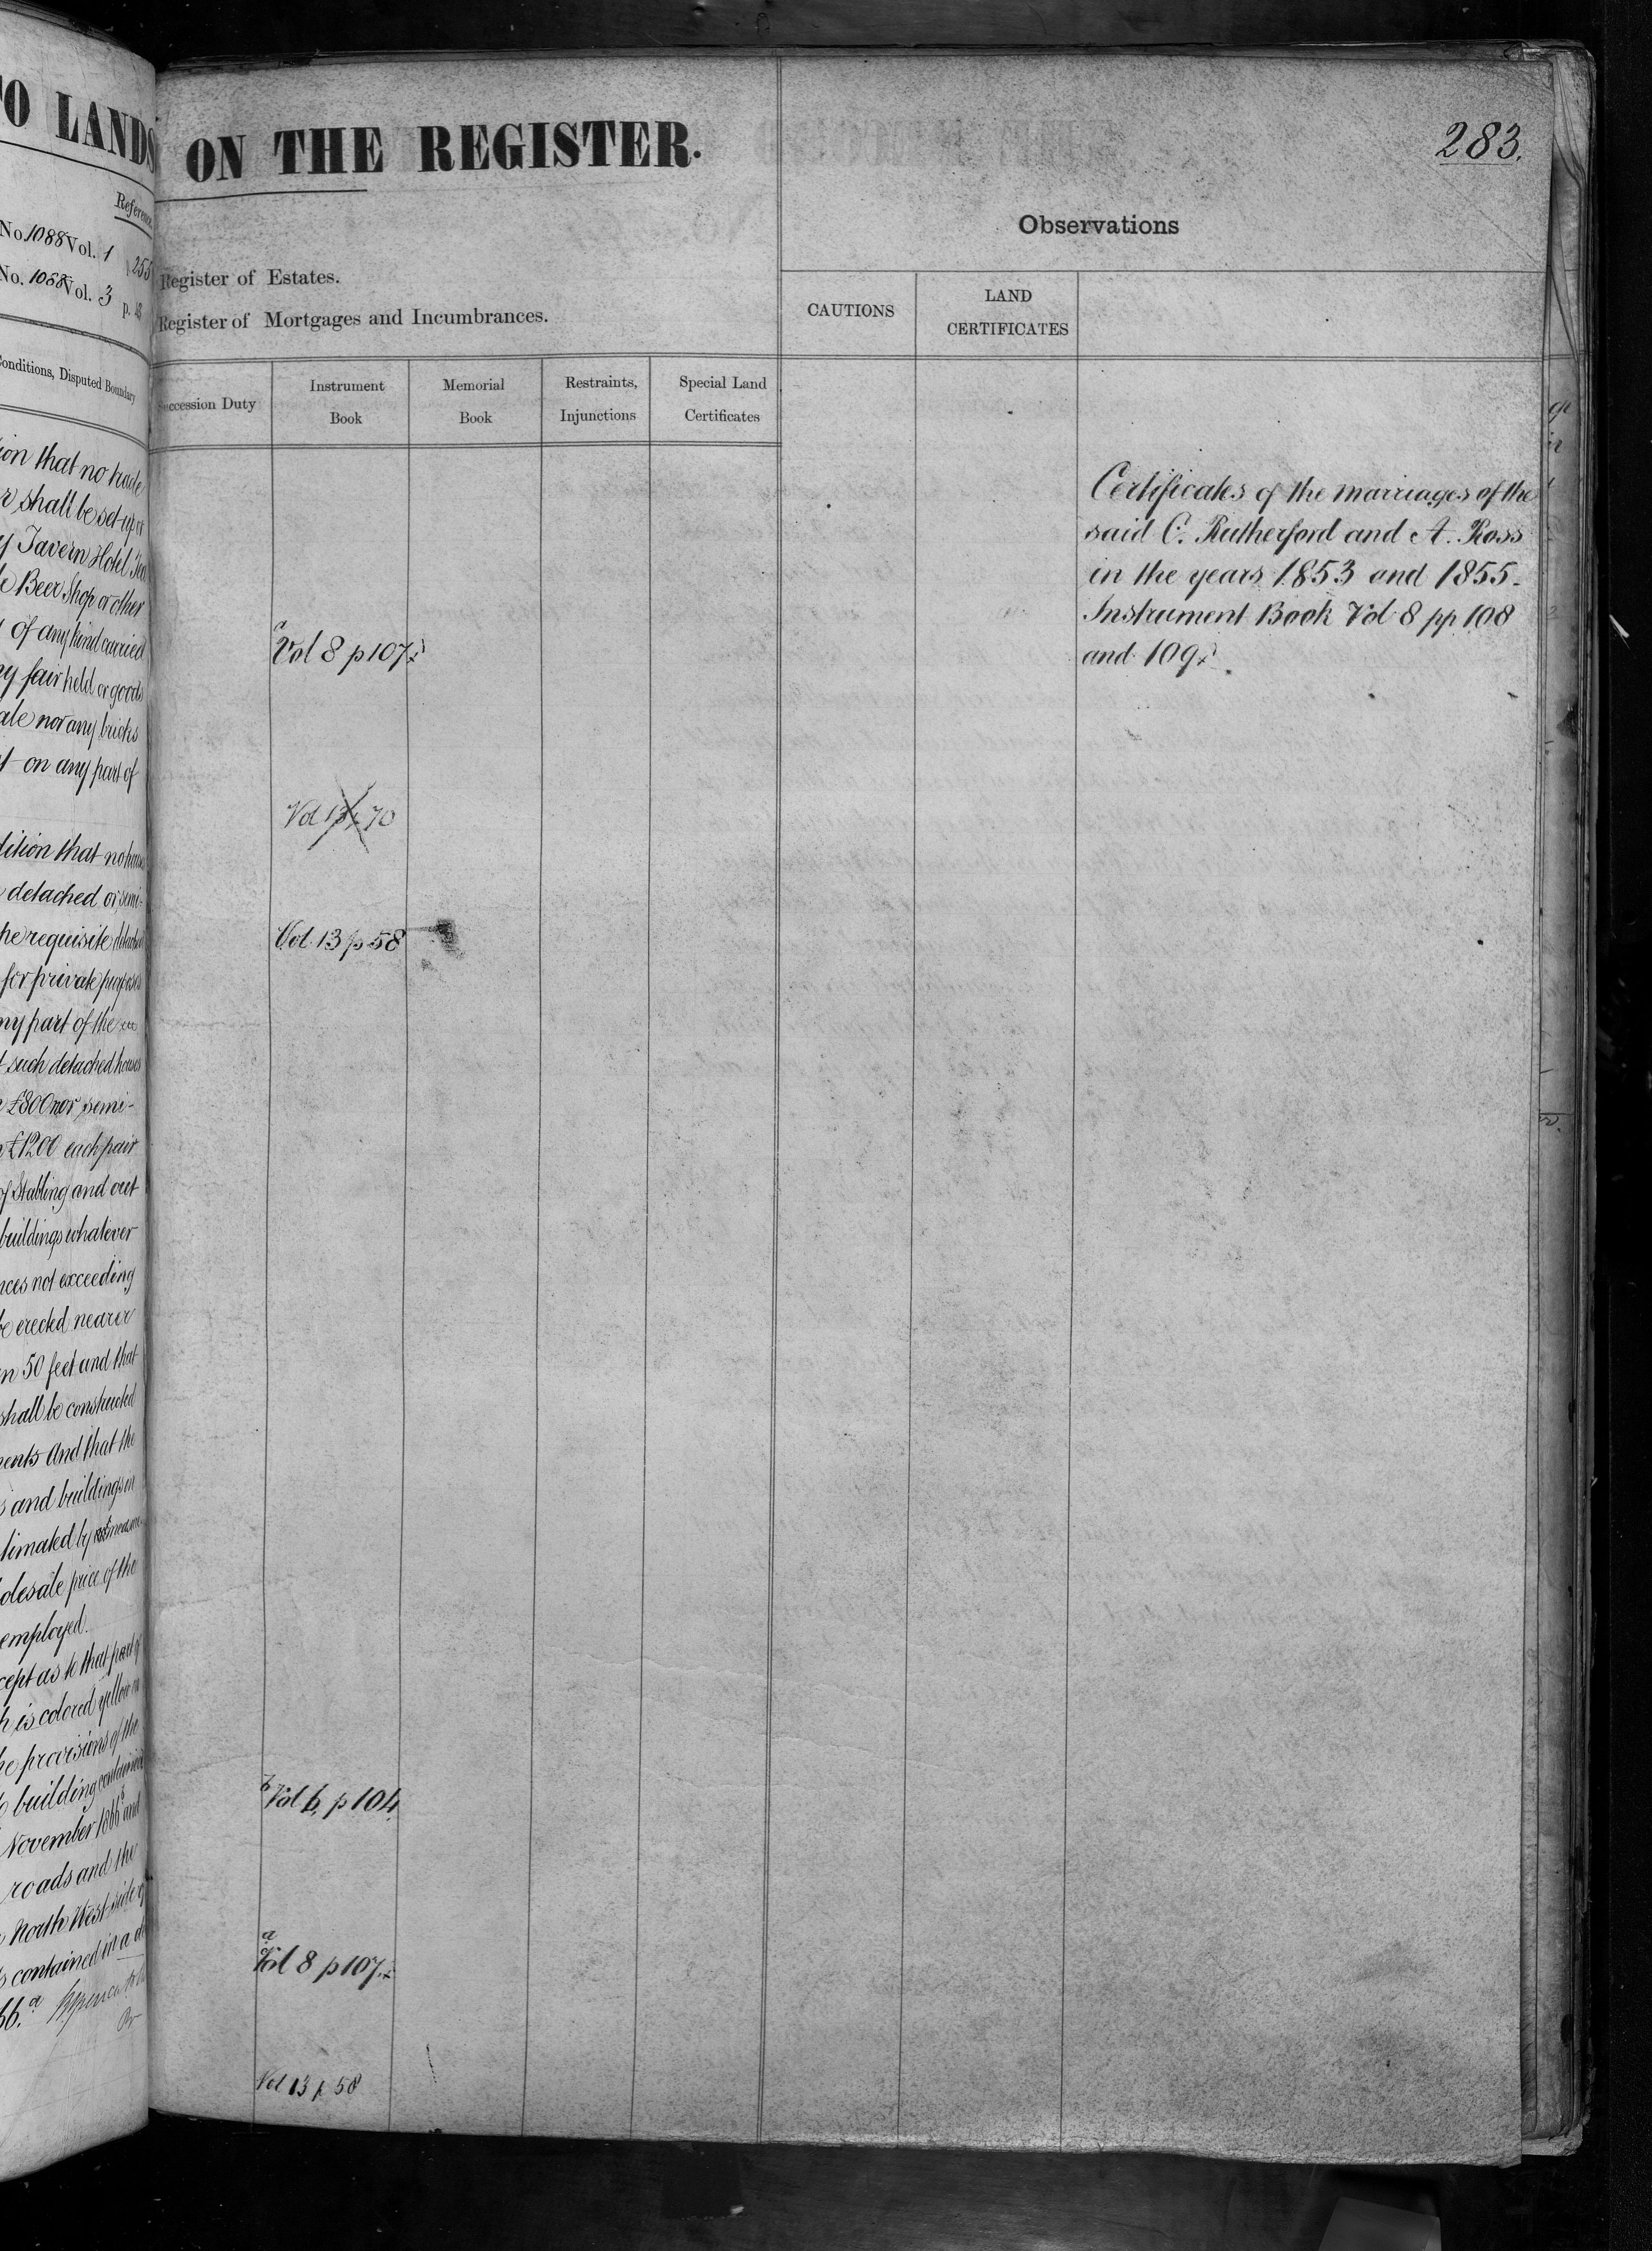 TO LANDS
Reference
No 1088 Vol. 1 p 255
No. 1088 Vol. 3 p.
Conditions, Disputed Boundary
that no trade
shall be set up or
Tavern Hotel
Beer Shop or other
of any kind carried
fair held or goods
nor any bricks
on any part of
that no house
detached or semi-
requisite detached
for private purposes
part of the
such detached houses
£800 nor semi-
£1200 each pair
of Stabling and out
buildings whatever
not exceeding
be erected nearer
50 feet and that
shall be constructed
And that the
and buildings
by
price of the
employed.
as to that part of
is colored yellow
provisions of the
building contained
November 1866 and
roads and the
North West side of
contained in a
ON THE REGISTER.
283.
Observations
Register of Estates.
Register of Mortgages and Incumbrances.
CAUTIONS
LAND
CERTIFICATES
Succession Duty
Instrument
Book
Memorial
Book
Restraints,
Injunctions
Special Land
Certificates
Certificates of the marriages of the
said C. Rutherford and A. Ross
in the years 1853 and 1855.
Instrument Book Vol 8 pp 108
and 109
Vol 8 p 107
Vol 13 p 70
Vol 13 p 58
b
Vol 6, p 104
a
Vol 8 p 107
Vol 13 p 58